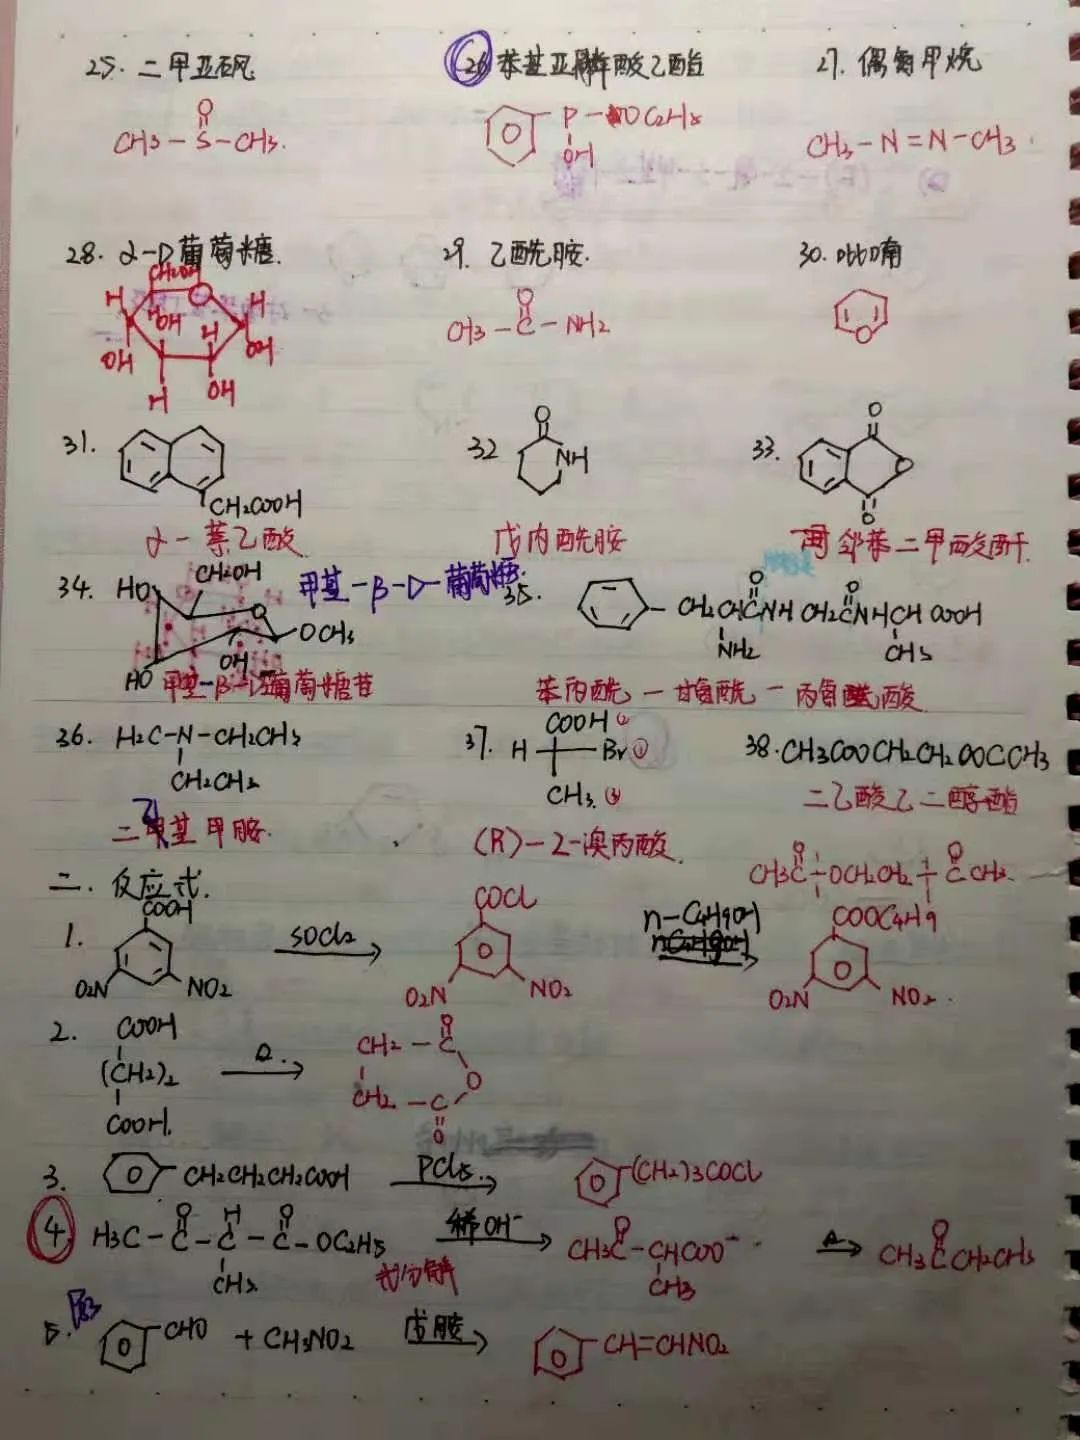 25. 二甲亚砜
26 苯基亚膦酸乙酯
27. 偶氮甲烷
CH3-S-CH3.
O
P-OC2H5
OH
CH3-N=N-CH3
28. α-D葡萄糖.
29. 乙酰胺.
30. 吡喃
CH2OH
H
O
H
OH
H
OH
OH
H
OH
O
CH3-C-NH2
O
31.
CH2COOH
α-萘乙酸
32
O
NH
戊内酰胺
33.
O
O
O
邻苯二甲酸酐
34.
HO
CH2OH
O
OCH3
OH
HO
甲基-β-D-葡萄糖
甲基-β-D葡萄糖苷
35.
O O
CH2CHCNHCH2CNHCHCOOH
NH2 CH3
苯丙酰-甘氨酰-丙氨酸
36. H3C-N-CH2CH3
CH2CH3
二乙基甲胺.
37.
COOH ②
H Br ①
CH3. ③
(R)-2-溴丙酸.
38. CH3COOCH2CH2OOCCH3
二乙酸乙二醇酯
O O
CH3C-OCH2CH2-CCH3.
二. 反应式.
1.
COOH
O2N NO2
SOCl2
COCl
O2N NO2
n-C4H9OH
COOC4H9
O2N NO2.
2.
COOH
(CH2)2
COOH.
Δ.
O
CH2-C
O
CH2-C
O
3.
CH2CH2CH2COOH
PCl5.
(CH2)3COCl
4.
O H O
H3C-C-C-C-OC2H5
CH3
稀OH-
O
CH3C-CHCOO-
CH3
Δ
O
CH3CCH2CH3
5.
CHO + CH3NO2
戊胺
CH=CHNO2